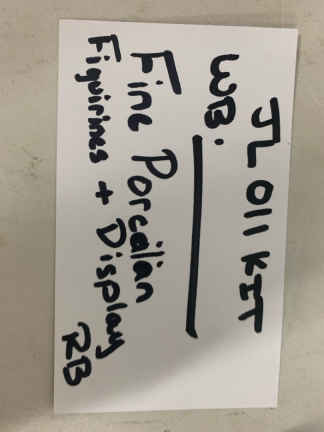 JL011KIT
WB. ____
Fine Porcelian
Figurines + Display
RB